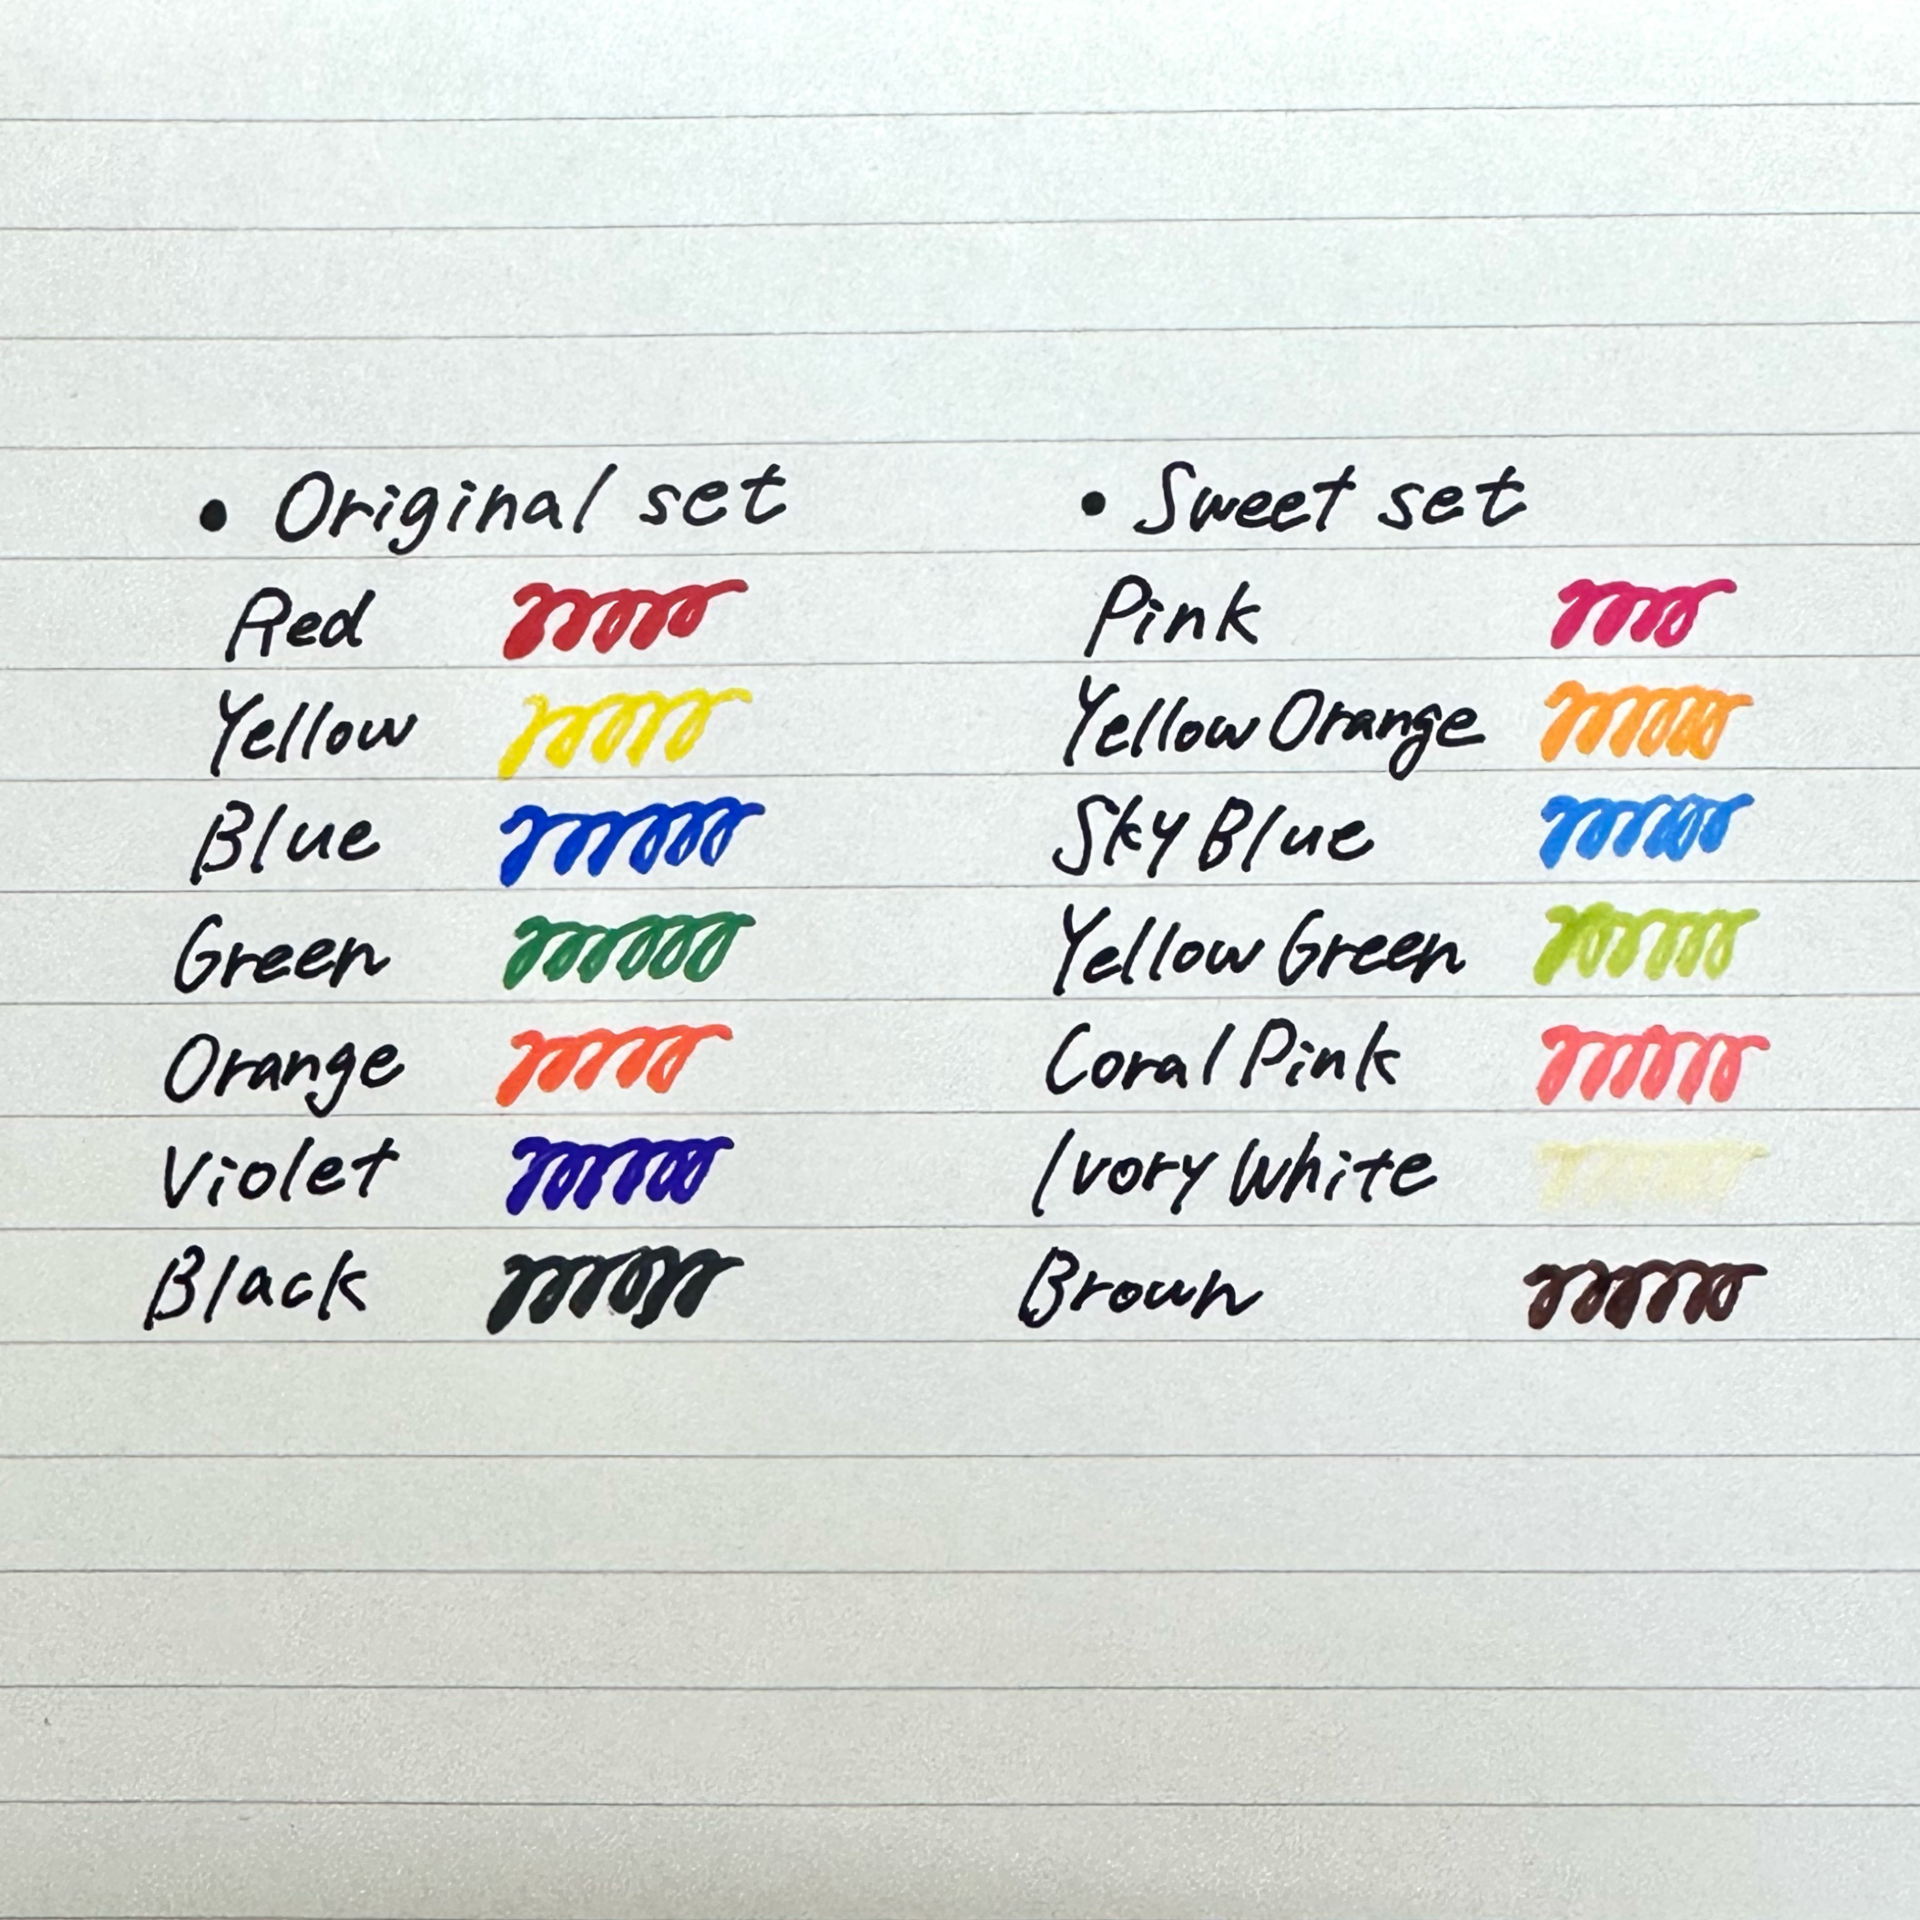 • Original set
Red
Yellow
Blue
Green
Orange
Violet
Black
• Sweet set
Pink
Yellow Orange
Sky Blue
Yellow Green
Coral Pink
Ivory White
Brown